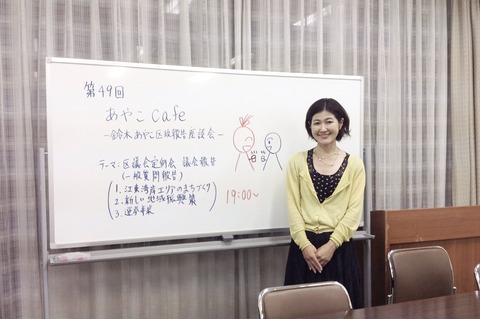 第49回
あやこcafe
-鈴木あやこ区政報告座談会-
テーマ:区議会定例会 議会報告
(一般質問報告)
1. 江東湾岸エリアのまちづくり
2. 新しい地域振興策
3.
19:00~